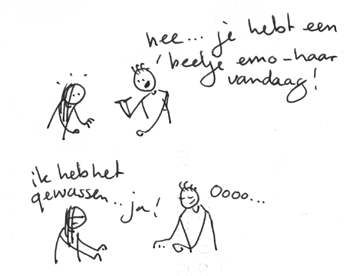 hee... je hebt een
beetje emo-haar
vandaag!
ik heb het
gewassen.. ja!
Oooo...